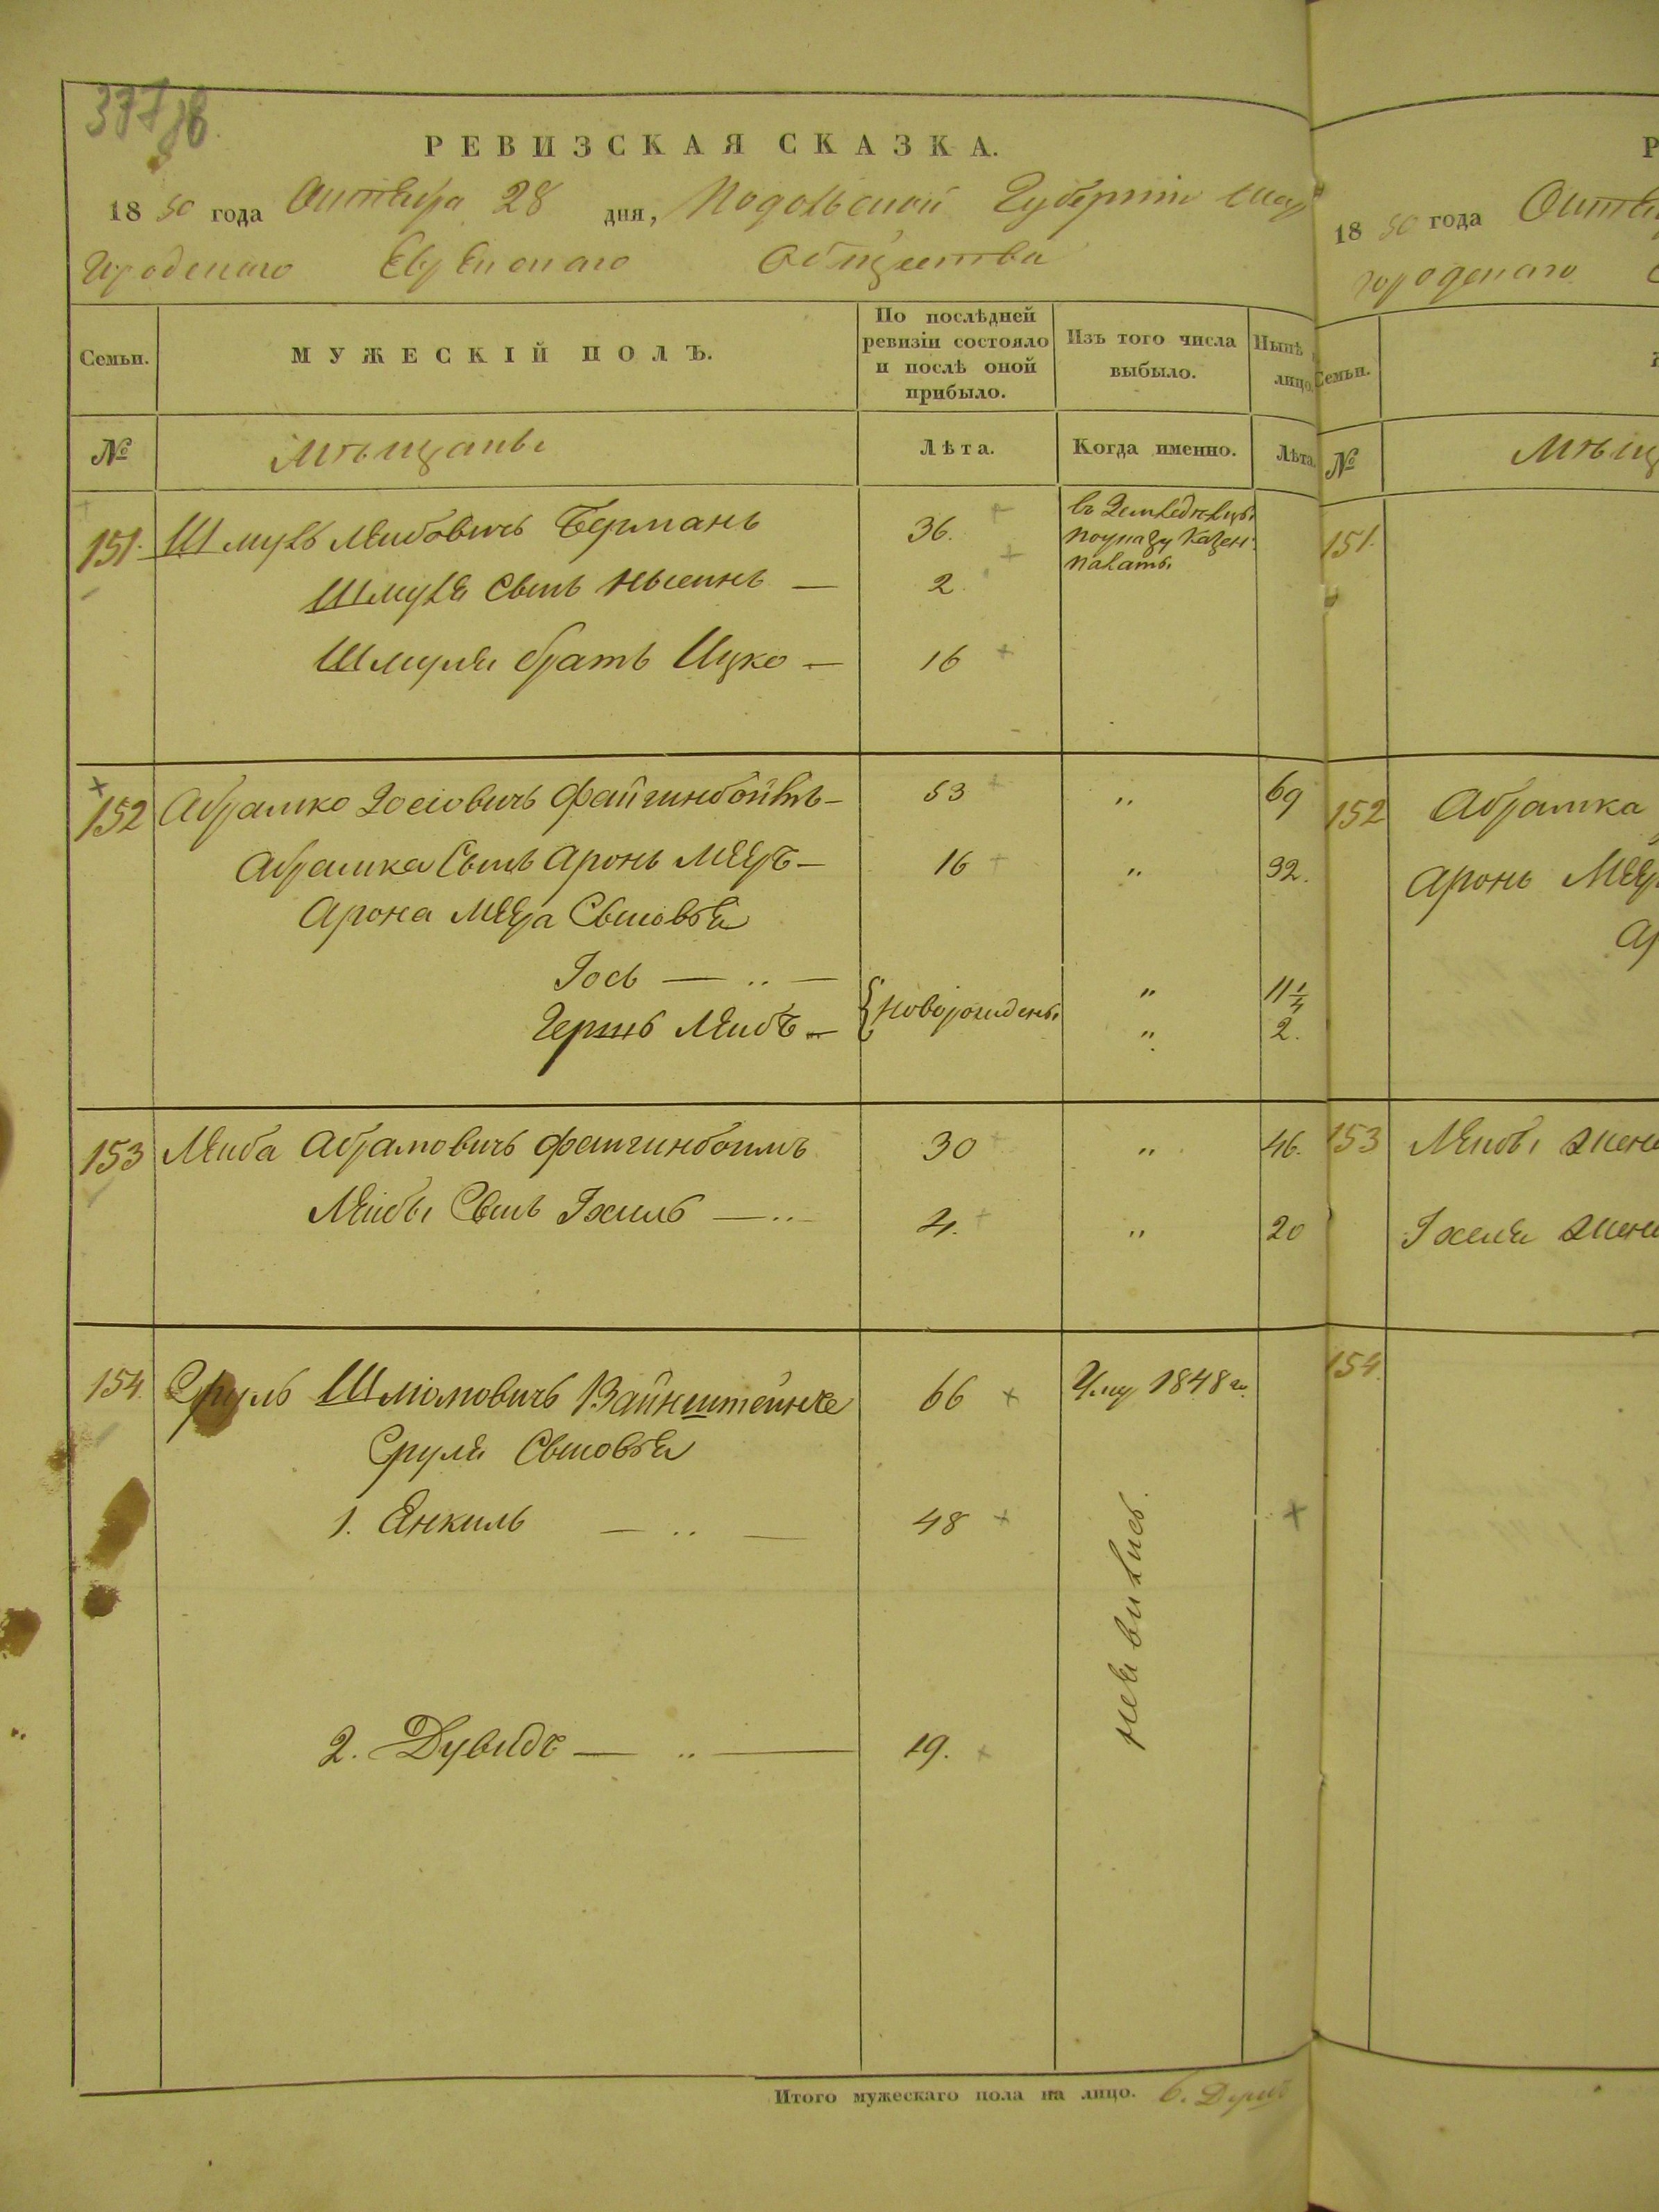 РЕВИЗСКАЯ СКАЗКА.
1850 года Октября 28 дня, Подольской Губернiи Шар
городскаго Еврейскаго Общества
Семьи. МУЖЕСКІЙ ПОЛЪ. По послѣдней ревизіи состояло и послѣ оной прибыло. Изъ того числа выбыло. Нынѣ лицо.
№ Мѣщаны Лѣта. Когда именно. Лѣта.
151. Шмуль Лейбовичь Берманъ 36. въ Земледѣльцы
поуказу Казен:
палаты
Шмуля Сынъ Нысинъ — 2
Шмуля братъ Ицко — 16
152 Абрамко Іосіовичь Файгинбоймъ — 53 " 69
Абрамка Сынъ Аронъ Меер — 16 " 32.
Арона Меера Сыновья
Іось — " — новорожденъ " 11 1/4
Герш Лейб — " 2.
153 Лейба Абрамовичь Файгинбоимъ 30 " 46.
Лейбы Сынъ Іхиль — " 4. " 20
154. Сруль Шліомовичь Вайнштейнке 66 Уму 1848 го.
Сруля Сыновья
1. Янкиль — " — 48
неявились.
2. Дувидъ — " — 19.
Итого мужескаго пола на лицо. 6.
18 50 года
городскаго
Семьи.
№
151.
152 Абрамка
Аронъ Меер
153 Лейбы жена
Іхиля жена
154.